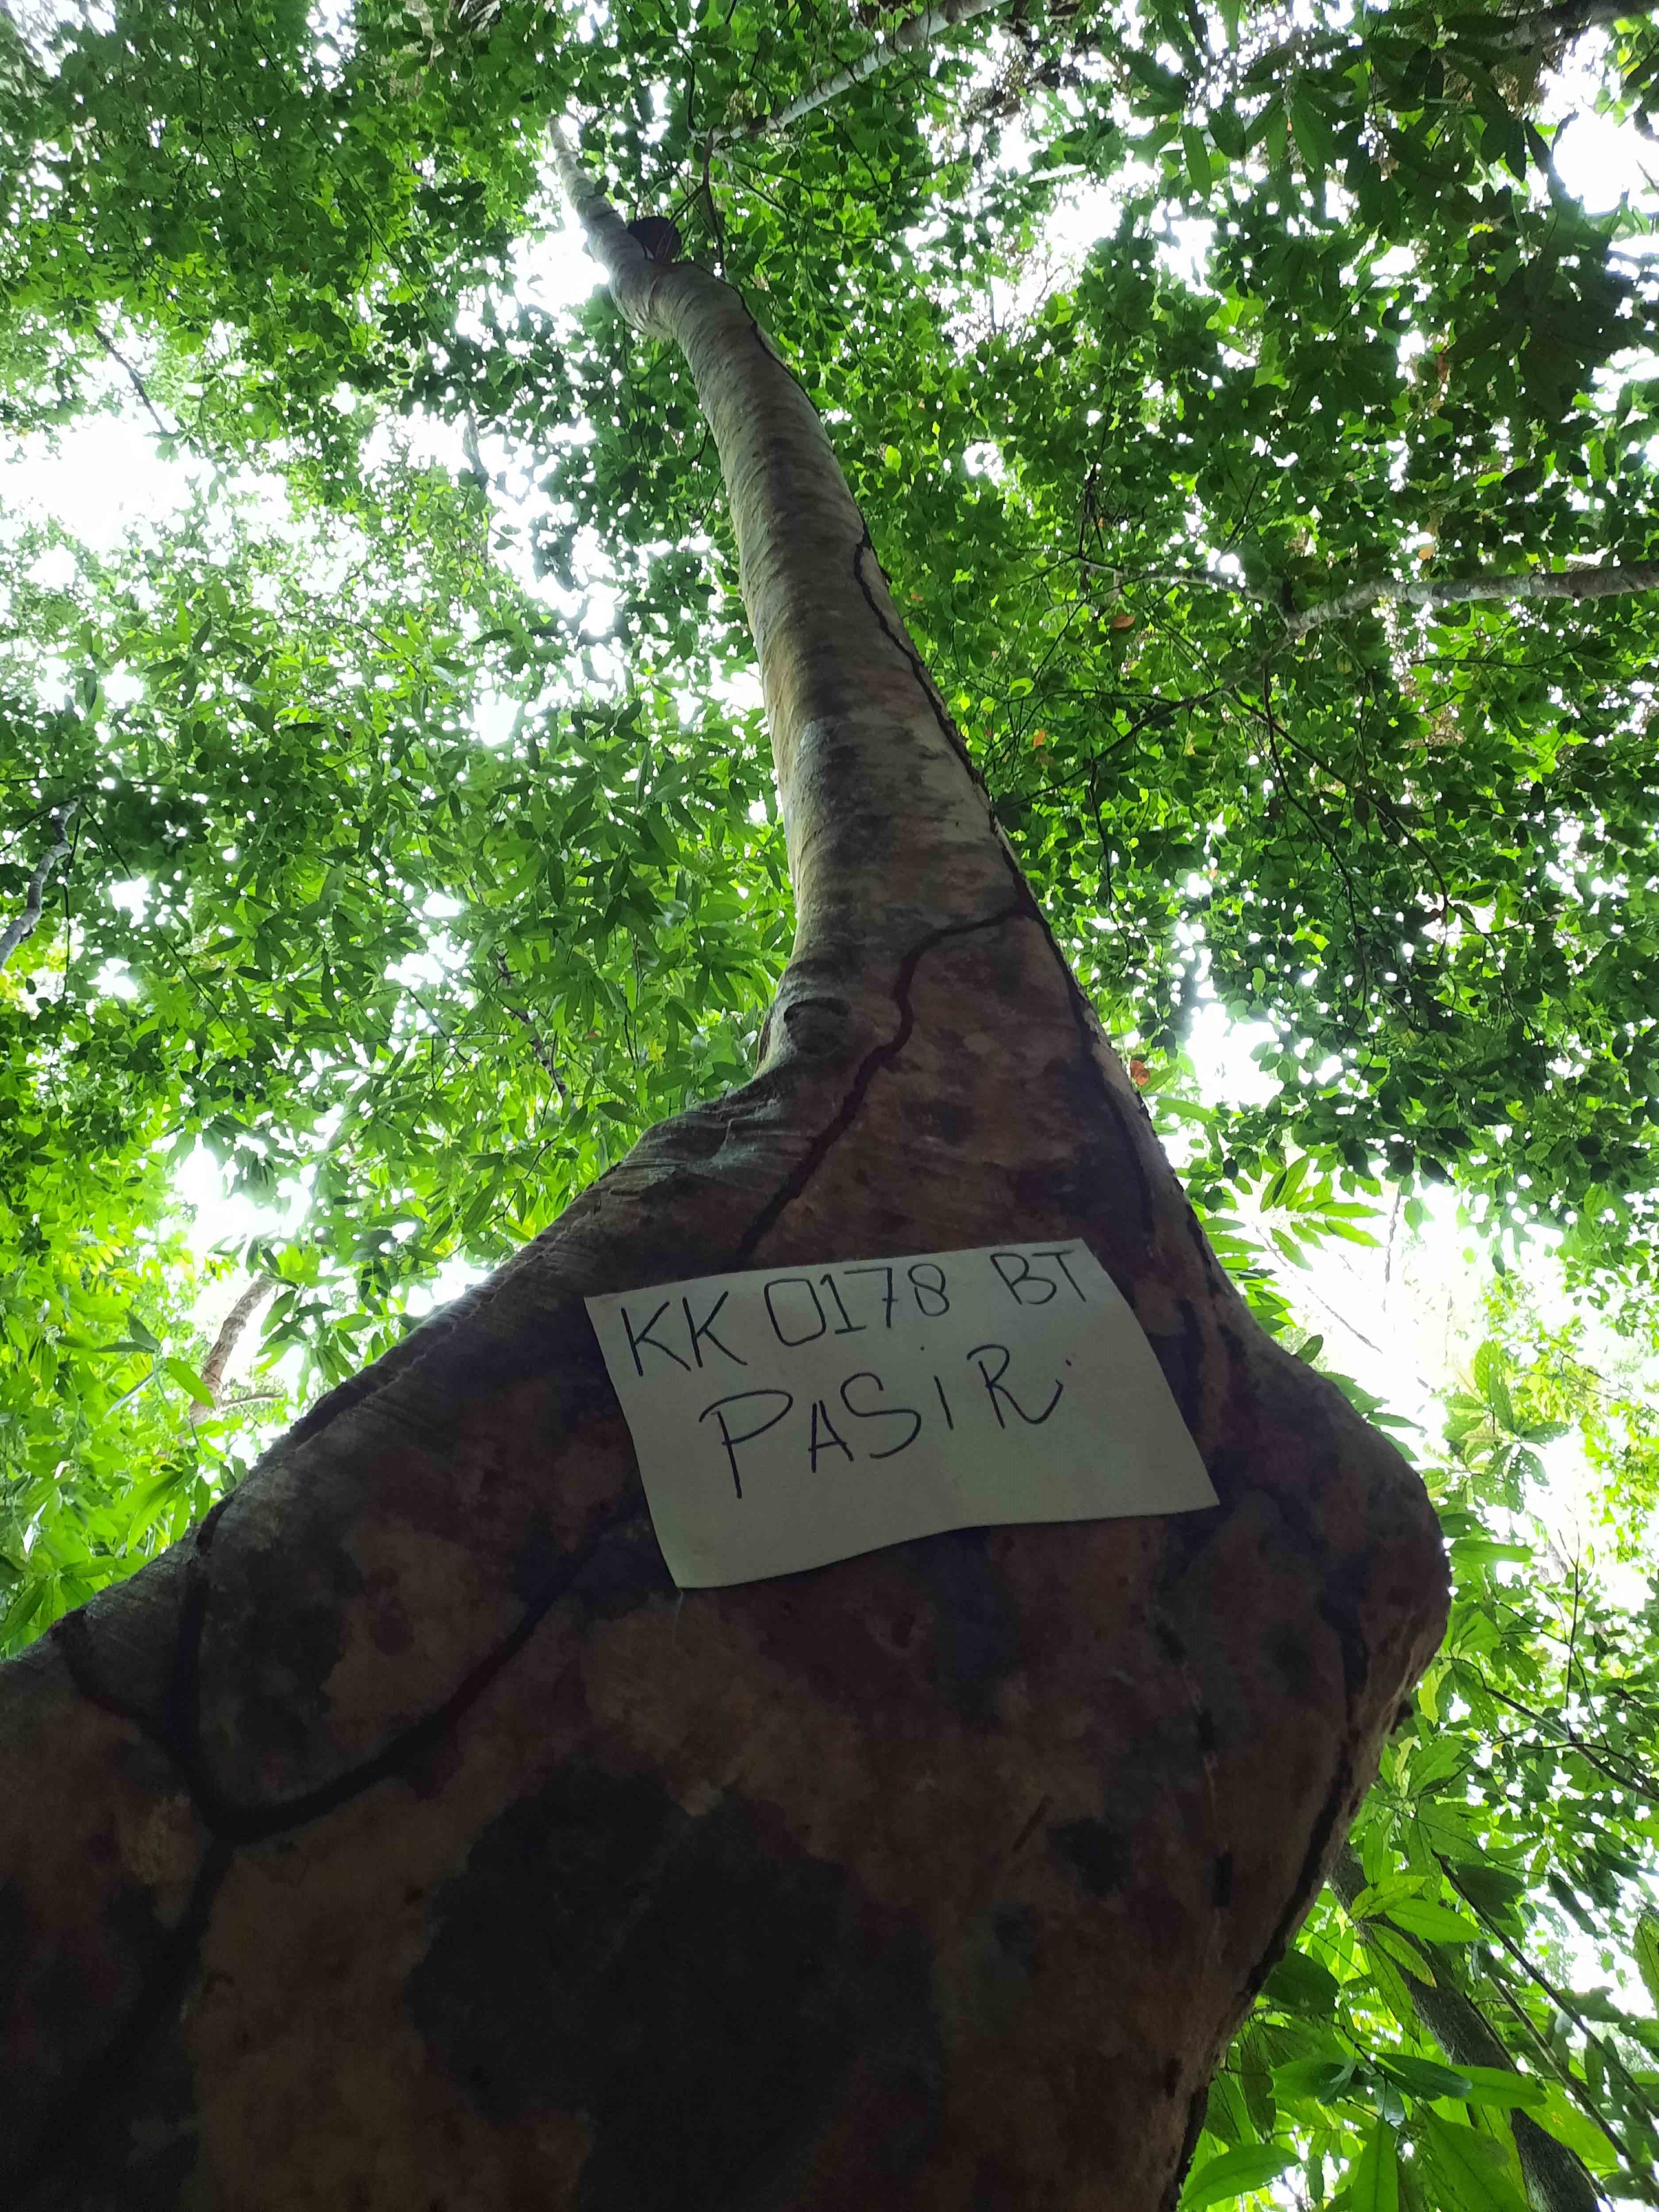 KK 0178 BT
PASiR